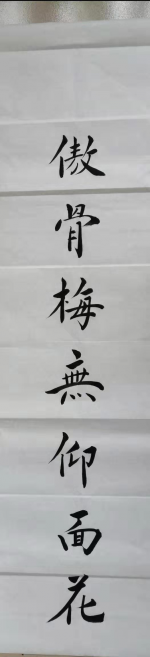 傲骨梅無仰面花